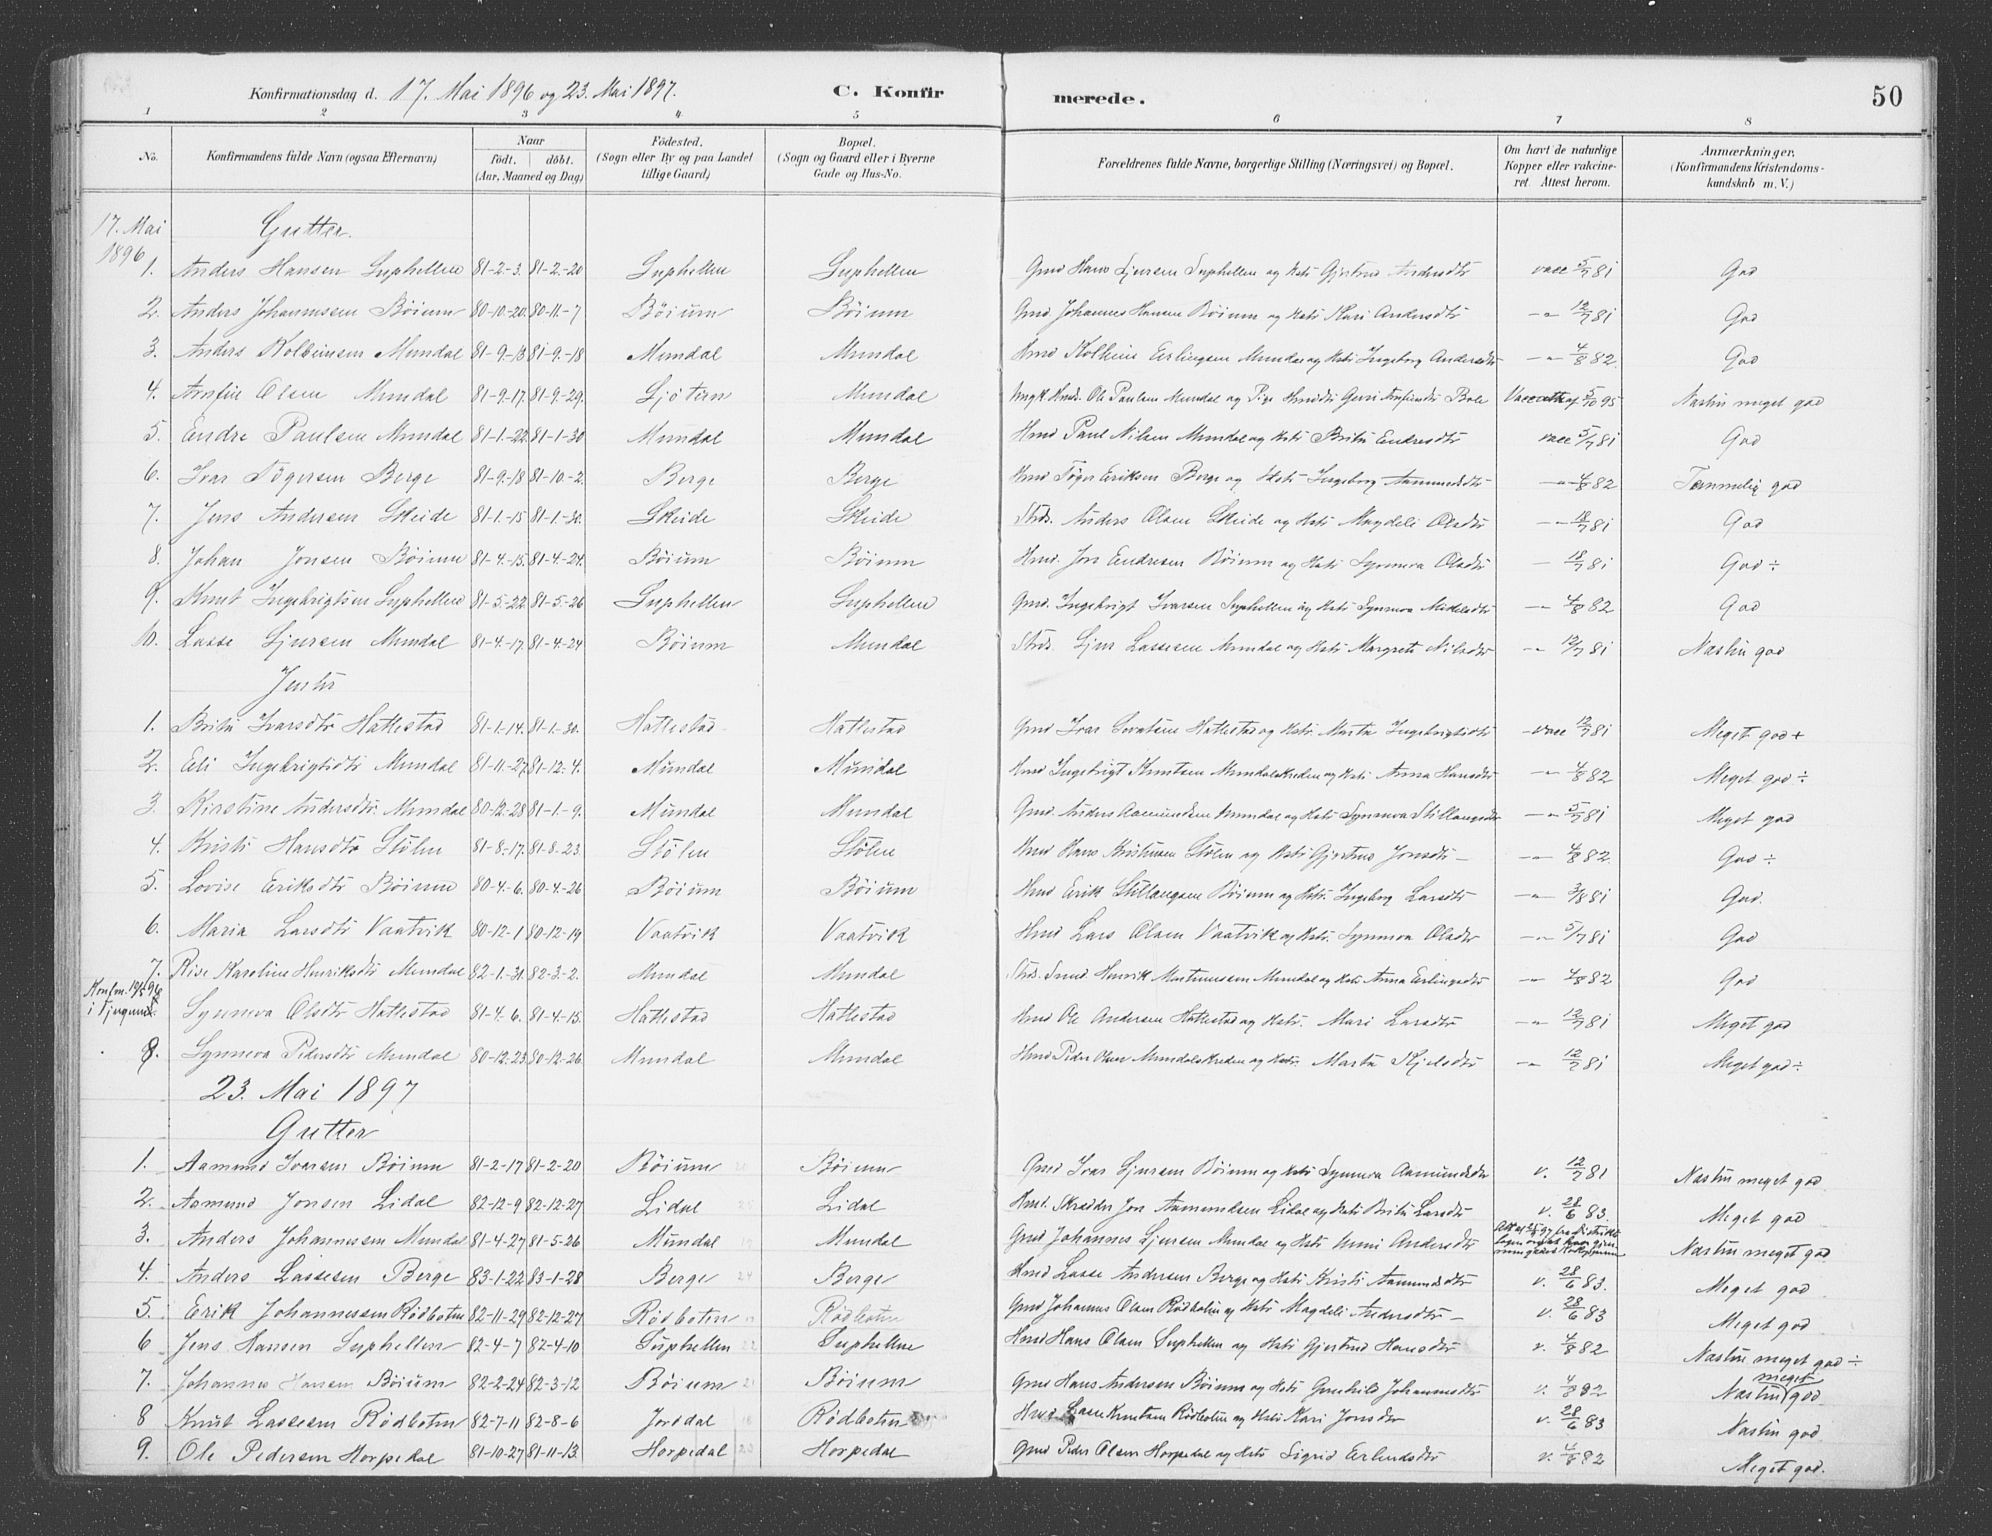 Konfirmationsdag d. 17. Mai 1896 og 23. Mai 1897. C. Konfirmerede. 50
1 2 3 4 5 6 7 8
No. Konfirmandens fulde Navn (ogsaa Efternavn) Naar født. døbt. (Aar, Maaned og Dag) Fødested. (Sogn eller By og paa Landet tillige Gaard) Bopæl. (Sogn og Gaard eller i Byerne Gade og Hus-No. Forældrenes fulde Navne, borgerlige Stilling (Næringsvei) og Bopæl. Om havt de naturlige Kopper eller vakcineret. Attest herom. Anmærkninger, (Konfirmandens Kristendomskundskab m. V.)
17. Mai 1896 Gutter.
1. Anders Hansen Suphellen 81-2-3. 81-2-20 Suphellen Suphellen Gmd Hans Sjursen Suphellen og Kstr Gjertrud Andersdtr vacc 5/7 81 God
2. Anders Johannessen Bøium 80-10-20. 80-11-7 Bøium Bøium Gmd Johannes Hansen Bøium og Kstr Kari Andersdtr -"- 12/7 81 God
3. Anders Kolbeinsen Mundal 81-9-13 81-9-18 Mundal Mundal Hmd Kolbein Erlingsen Mundal og Kstr Ingeborg Andersdtr -"- 4/8 82. God
4. Arnfin Olsen Mundal 81-9-17. 81-9-29. Mundal Ungk Hmds. Ole Paulsen Mundal og Pige Gjeri Arnfindtr Næstin meget god
5. Endre Paulsen Mundal 81-1-22 81-1-30 Mundal Mundal Hmd Paul Nilsen Mundal og Kstr Brita Endresdtr vacc 5/7 81 God
6. Ivar Tøgersen Berge 81-9-18 81-10-2. Berge Berge Hmd Tøger Eriksen Berge og Kstr Ingeborg Aamundsdtr -"- 4/8 82 Temmelig god
7. Jens Andersen Skeide 81-1-15 81-1-30. Skeide Skeide Strds. Anders Olsen Skeide og Kstr Magdeli Olsdtr -"- 18/7 81 God
8. Johan Jonsen Bøium 81-4-15. 81-4-24. Bøium Bøium Hmd. Jon Endresen Bøium og Kstr Synneva Olsdtr - 18/7 81 God ÷
9. Knut Ingebrigtsen Suphellen 81-5-22 81-5-26 Suphellen Suphellen Gmd. Ingebrigt Ivarsen Suphellen og Kstr Synneva Mikkelsdtr -"- 4/8 82 God
10. Lasse Sjursen Mundal 81-4-17. 81-4-24 Bøium Mundal Strds. Sjur Lassesen Mundal og Kstr Margrete Nilsdtr -"- 12/7 81 Næstin god
Jenter
1. Brita Ivarsdtr Hatlestad 81-1-14. 81-1-30. Hatlestad Hatlestad Gmd Ivar Hatlestad og Kstr. Marta Ingebrigtsdtr - vacc 12/7 81 Meget god +
2. Eli Ingebrigtsdtr Mundal 81-11-27. 81-12-4. Mundal Mundal Hmd Ingebrigt Knutsen Mundalskreden og Kstr. Anna Hansdtr -"- 4/8 82 Meget god ÷
3. Kirstine Andersdtr. Mundal 80-12-28 81-1-9. Mundal Mundal Gmd. Anders Aamundsen Mundal og Kstr Synneva Stillaugsdtr -"- 5/7 81 Meget god
4. Kristi Hansdtr Stølen 81-8-17. 81-8-23. Stølen Stølen Hmd Hans Kristensen Stølen og Kstr Gjertrud Jonsdtr - -"- 4/8 82. God ÷
5. Lovise Eriksdtr Bøium 80-4-6. 80-4-26 Bøium Bøium Hmd Erik Stillaugsen Bøium og Kstr. Ingeborg Larsdtr -"- 3/8 81 God.
6. Maria Larsdtr Vaatvik 80-12-1 80-12-19 Vaatvik Vaatvik Hmd Lars Olsen Vaatvik og Kstr. Synneva Olsdtr -"- 5/7 81 God
7. Rise Karoline Henriksdtr Mundal 82-1-31. 82-3-2. Mundal Mundal Strds. Smed Henrik Martinussen Mundal og Kstr Anna Erlingsdtr -"- 4/8 82 God
Synneva Olsdtr Hatlestad 81-4-6. 81-4-15. Hatlestad Hatlestad Hmd Ole Andersen Hatlestad og Kstr. Mari Larsdtr -"- 12/7 81 Meget god
8. Synneva Pedersdtr Mundal 80-12-23 80-12-26. Mundal Mundal Hmd Peder Olsen Mundalskreden og Kstr. Marta Kjelsdtr -"- 12/7 81 Meget god ÷
23. Mai 1897
Gutter
1. Aamund Ivarsen Bøium 81-2-17 81-2-20 Bøium Bøium Gmd Ivar Sjursen Bøium og Kstr Synneva Aamundsdtr v. 12/7 81 Næstin meget god
2. Aamund Jonsen Lidal 82-12-9 82-12-27 Lidal Lidal Hmd. Skrædder Jon Aamundsen Lidal og Kstr Brita Larsdtr v. 28/6 83. Meget god
3. Anders Johannessen Mundal 81-4-27 81-5-26 Mundal Mundal Gmd Johannes Sjursen Mundal og Kstr Unni Andersdtr Næstin meget god
4. Anders Lassesen Berge 83-1-22 83-1-28 Berge Berge Hmd Lasse Andersen Berge og Kstr Kristi Aamundsdtr v. 28/6 83. Meget god
5. Erik Johannessen Rødbotten 82-11-29 82-12-27 Rødbotten Rødbotten Gmd Johannes Olsen Rødbotten og Kstr Magdeli Andersdtr - v. 28/6 83 Meget god
6 Jens Hansen Suphellen 82-4-7 82-4-10 Suphellen Suphellen Hmd Hans Olsen Suphellen og Kstr Gjertrud Hansdtr v. 4/8 82 Næstin meget god ÷
7. Johannes Hansen Bøium 82-2-24 82-3-12 Bøium Bøium Gmd Hans Andersen Bøium og Kstr Gunhild Johannesdtr v. 4/8 82 Næstin meget god
8 Knut Lassesen Rødbotten 82-7-11 82-8-6 Jordal Rødbotten Hmd Lasse Knutsen Rødbotten og Kstr Kari Jonsdtr v. 28/6 83 Næstin god
9. Ole Pedersen Horpedal 81-10-27 81-11-13. Horpedal Horpedal Gmd Peder Olsen Horpedal og Kstr Sigrid Erlendsdtr v. 4/8 82 Meget god.